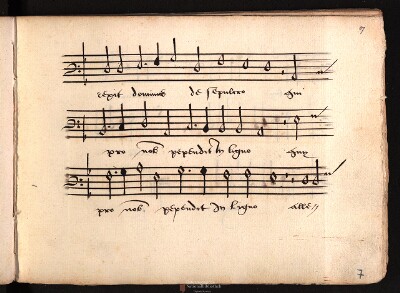 7
rexit dominus de sepulcro qui
pro nob pependit in ligno
pro nob pependit In ligno alle
7